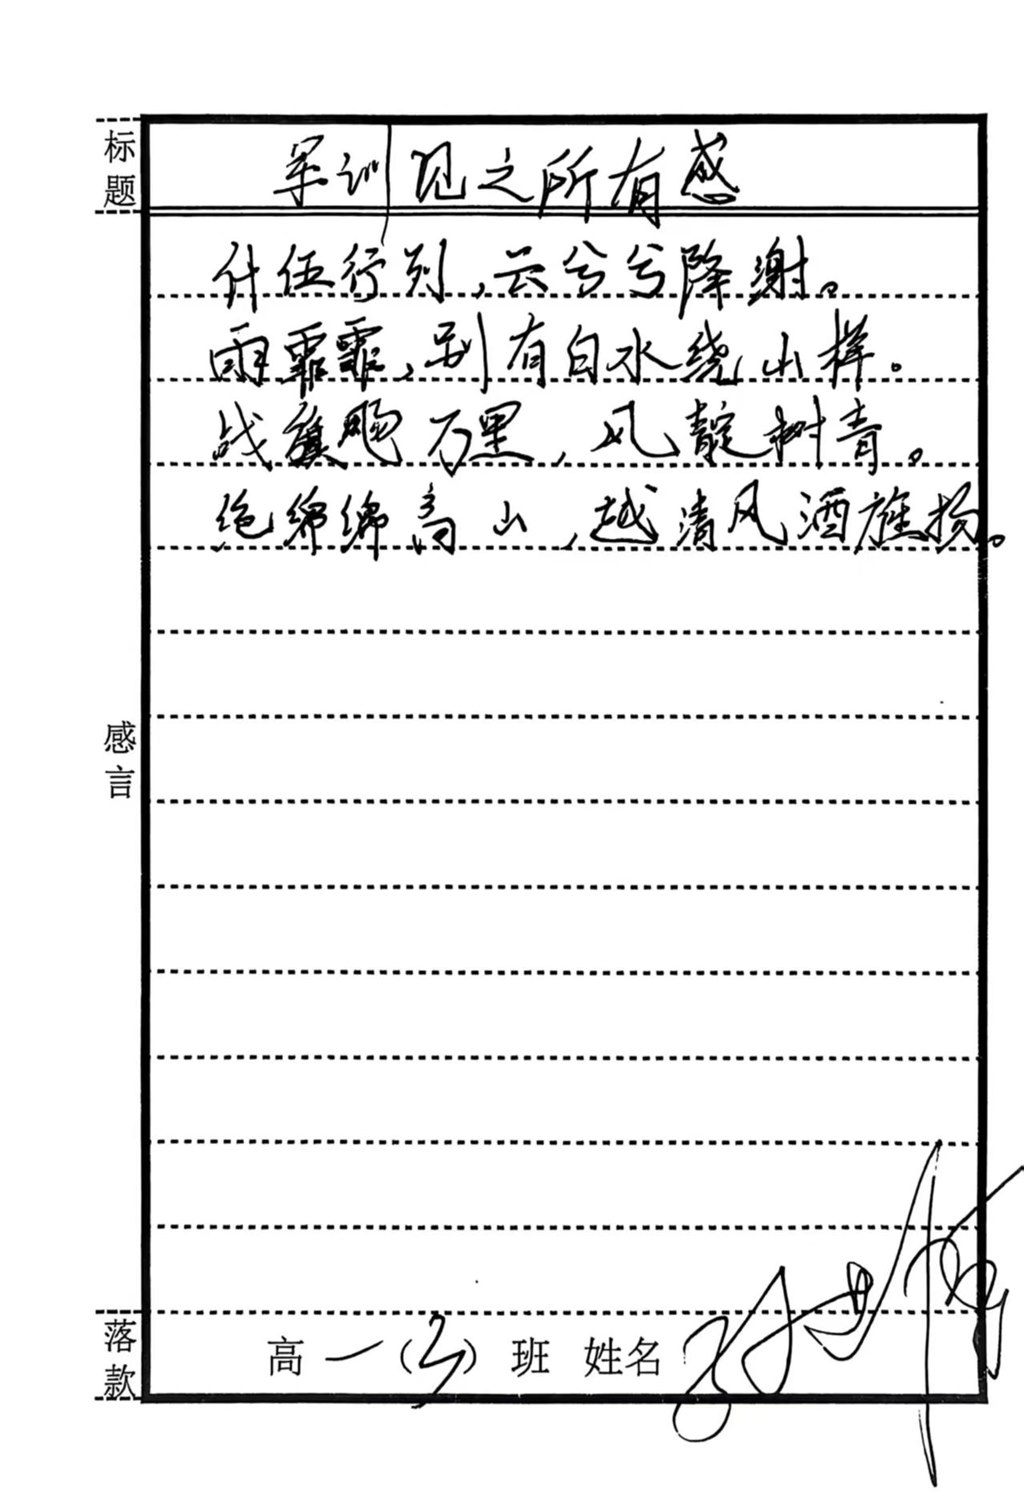 标题
军训见之所有感
什伍行列，云兮兮降谢。
雨霏霏，别有白水绕山样。
战旗飏万里，风靛树青。
绝绵绵高山，越清风酒旌扬。
感言
落款
高一（3）班 姓名